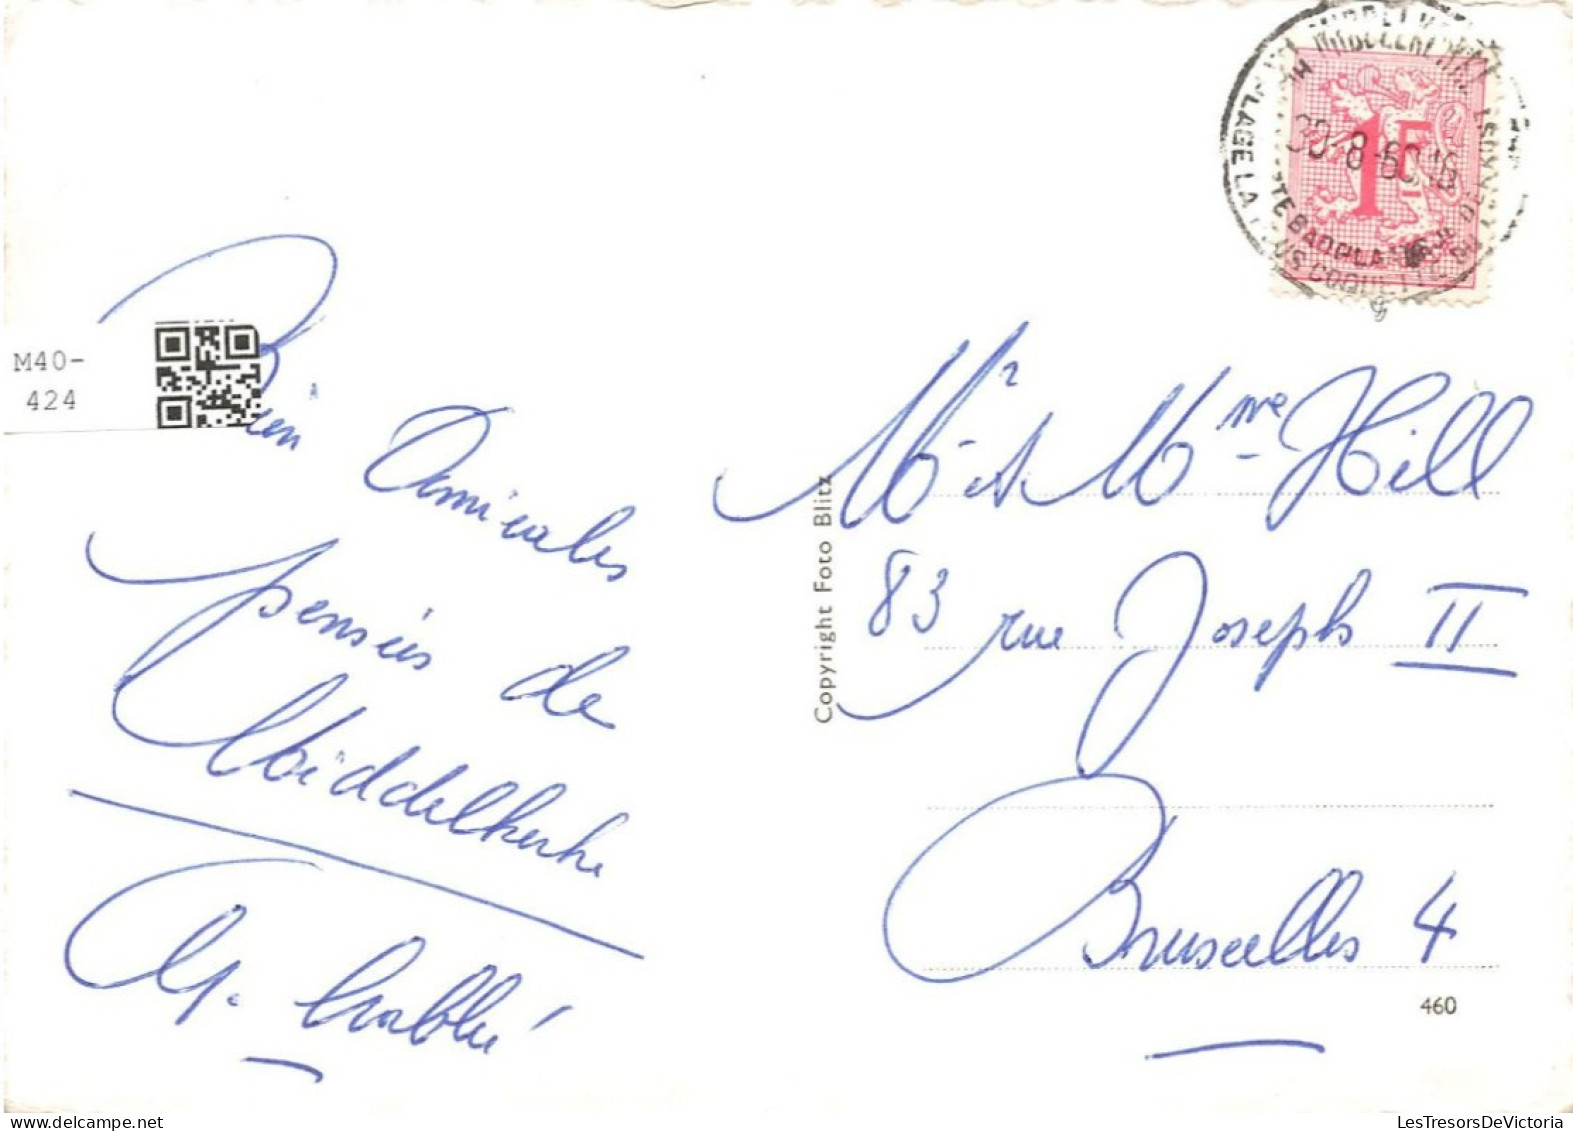 MIDDELKERKE
30-8-60 16
PLAGE LA PLUS COQUETTE DU
BADPLAATSJE DE
1F
M40-
424
Bien Amicales
pensées de
Middelkerke
Mr et Mme Hill
83 rue Joseph II
Bruxelles 4
Copyright Foto Blitz
460
LesTresorsDeVictoria